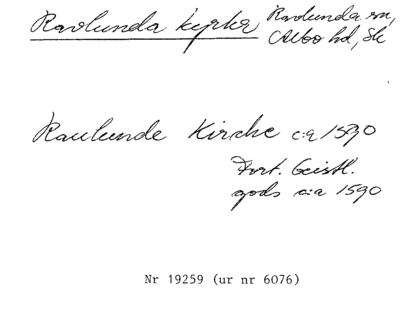 Ravlunda kyrka Ravlunda sn,
Albo hd, Sk
Raulunde Kirche c:a 1590
Fort. Geistl.
gods c:a 1590
Nr 19259 (ur nr 6076)